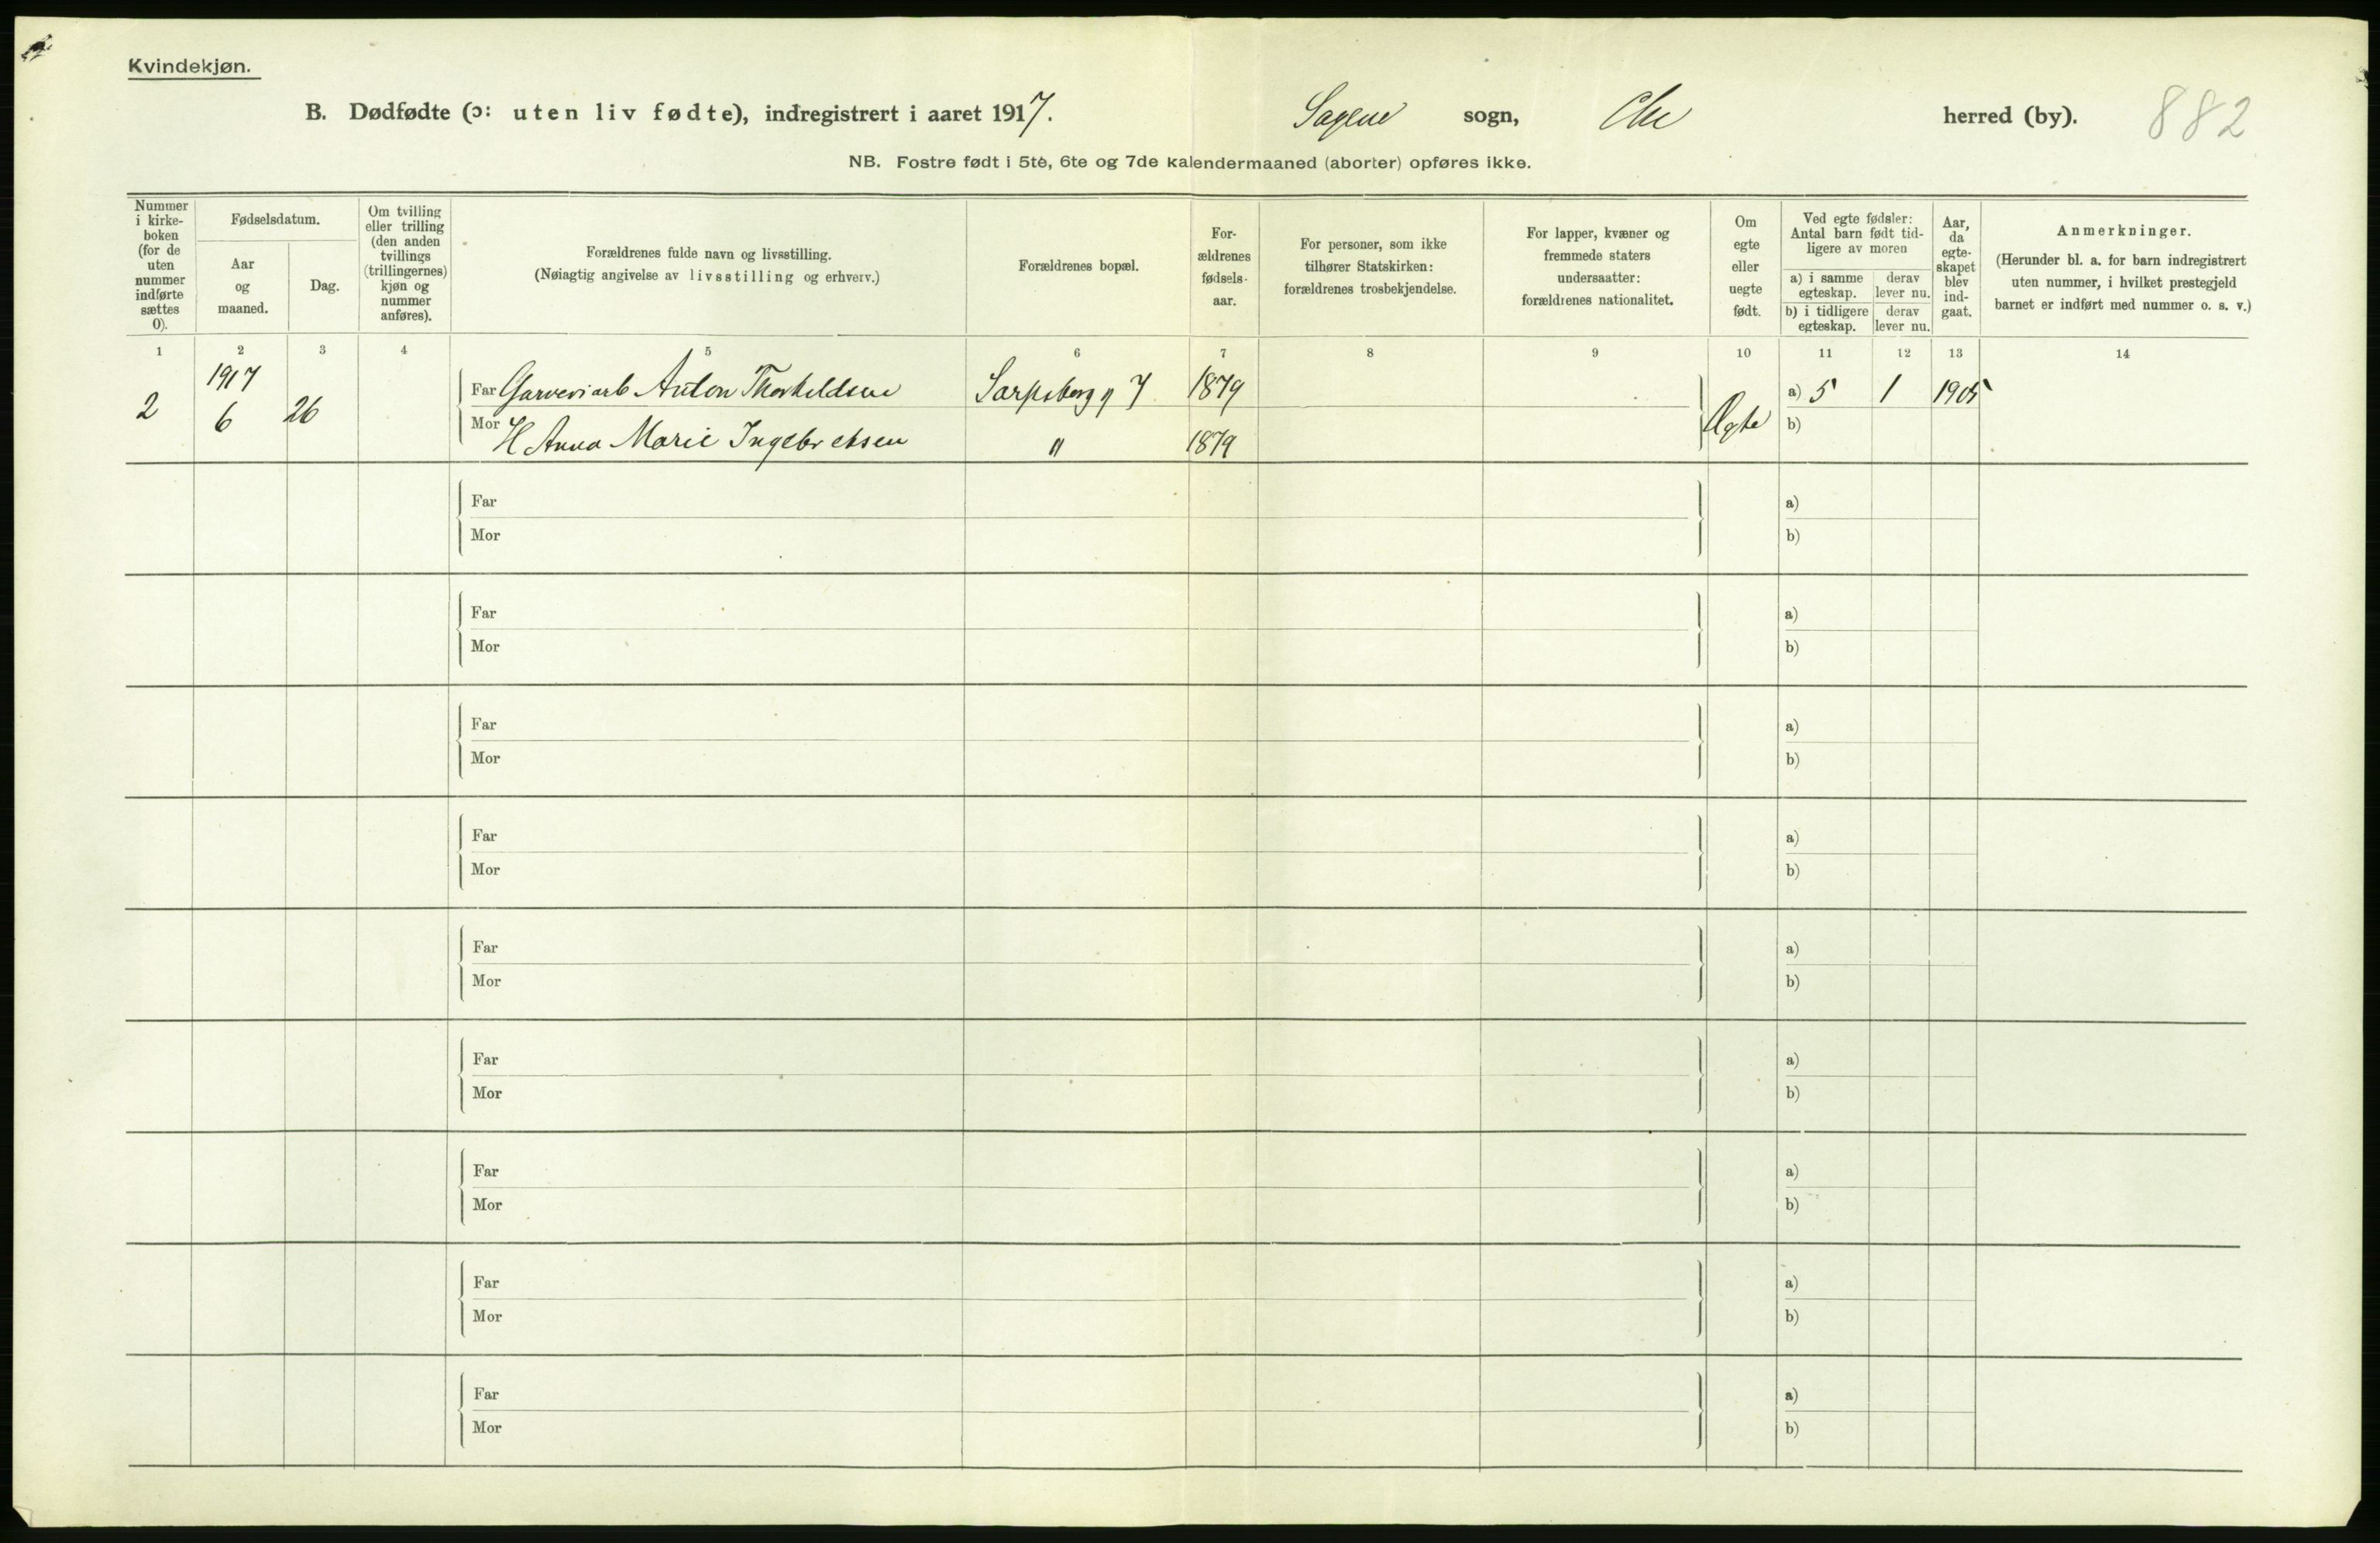 Kvindekjøn.
B. Dødfødte (ɔ: uten liv fødte), indregistrert i aaret 1917. Sagene sogn, Chr herred (by). 882
NB. Fostre født i 5te, 6te og 7de kalendermaaned (aborter) opføres ikke.
Nummer i kirke-boken (for de uten nummer indførte sættes 0).
Fødselsdatum.
Aar og maaned.
Dag.
Om tvilling eller trilling (den anden tvillings (trillingernes) kjøn og nummer anføres).
Forældrenes fulde navn og livsstilling.
(Nøiagtig angivelse av livsstilling og erhverv.)
Forældrenes bopæl.
For-ældrenes fødsels-aar.
For personer, som ikke tilhører Statskirken: forældrenes trosbekjendelse.
For lapper, kvæner og fremmede staters undersaatter: forældrenes nationalitet.
Om egte eller uegte født.
Ved egte fødsler: Antal barn født tid-ligere av moren
a) i samme egteskap. derav lever nu.
b) i tidligere egteskap. derav lever nu.
Aar, da egte-skapet blev ind-gaat.
Anmerkninger.
(Herunder bl. a. for barn indregistrert uten nummer, i hvilket prestegjeld barnet er indført med nummer o. s. v.)
1 2 3 4 5 6 7 8 9 10 11 12 13 14
1917
2 6 26
Far Garveriarb Anton Thorkeldsen Sarpsborg g 7 1879 Egte a) 5 1 1905
Mor H Anna Marie Ingebretsen " 1879 b)
Far a)
Mor b)
Far a)
Mor b)
Far a)
Mor b)
Far a)
Mor b)
Far a)
Mor b)
Far a)
Mor b)
Far a)
Mor b)
Far a)
Mor b)
Far a)
Mor b)